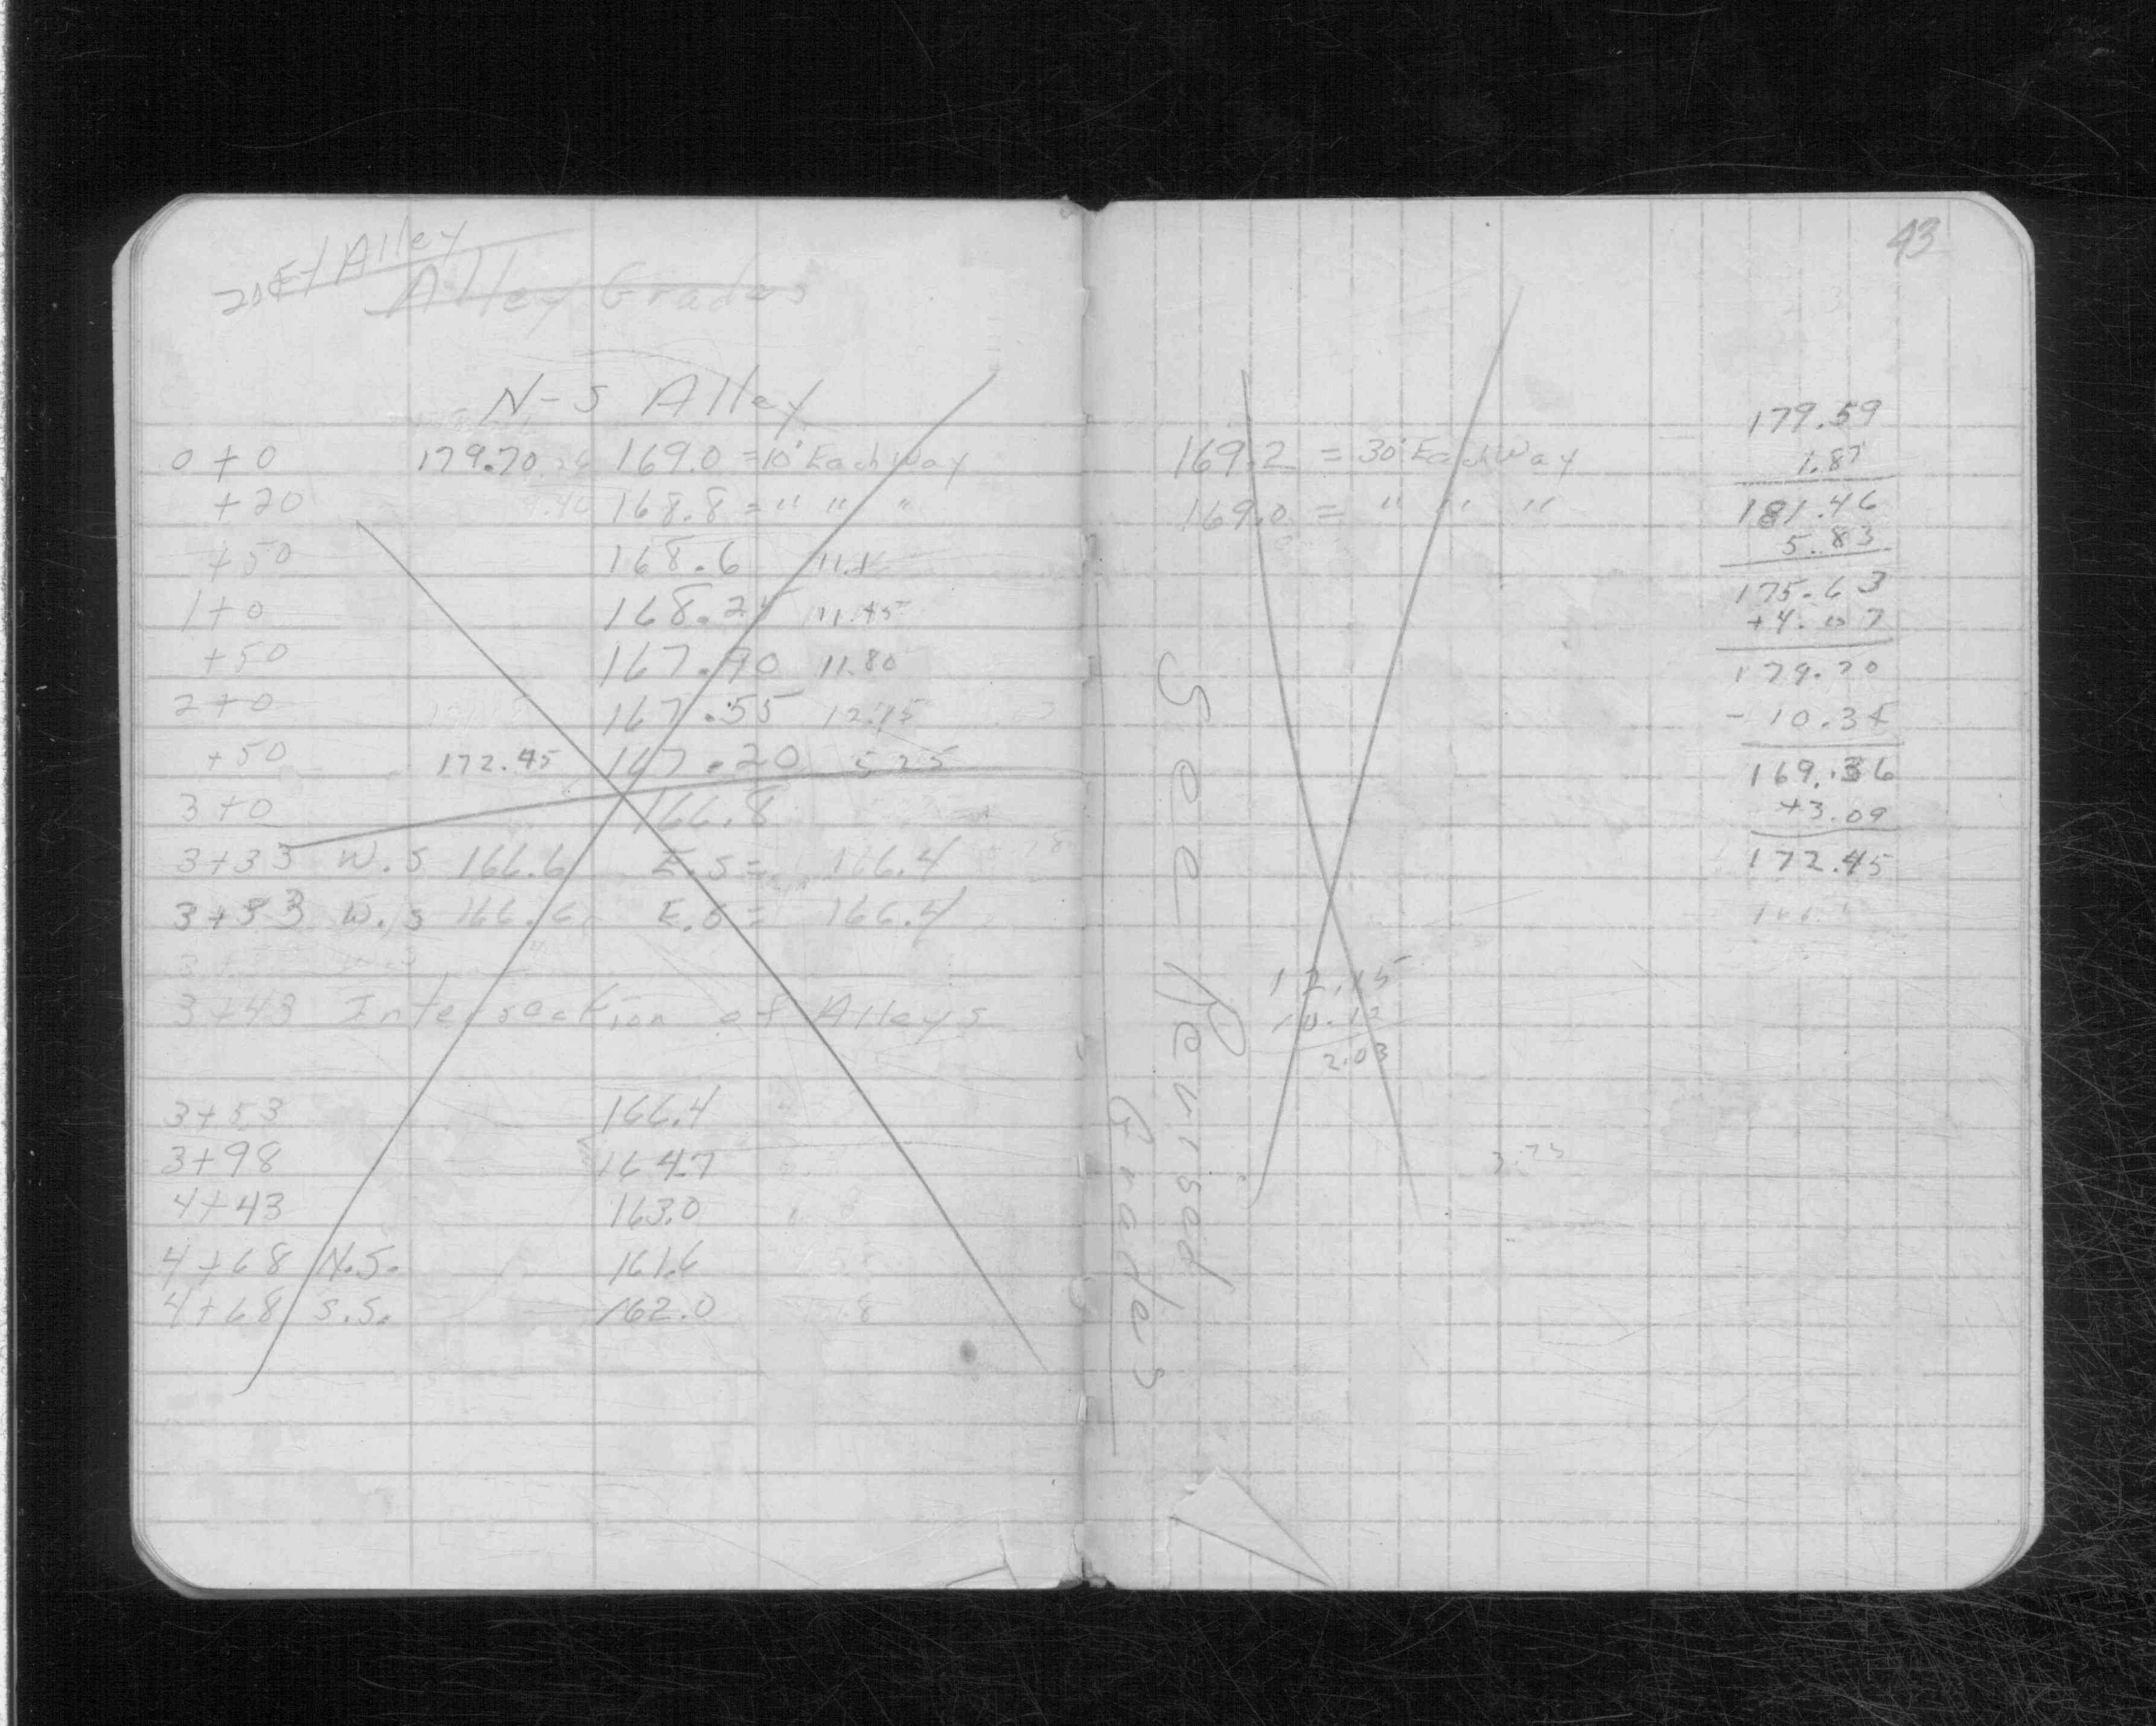 20 Ft Alley
Alley Grades
N-S Alley
0+0 179.70 169.0 = 10' Each Way
+20 168.8 = " " "
+50 168.6 11.1
1+0 168.25 11.45
+50 167.90 11.80
2+0 167.55 12.15
+50 172.45 167.20 5.25
3+0 166.8
3+33 W.S 166.6 E.S = 166.4
3+33 W.S 166.6 E.S = 166.4
3+43 Intersection of Alleys
3+53 166.4
3+98 164.7
4+43 163.0
4+68 N.S. 161.6
4+68 S.S. 162.0
43
169.2 = 30' Each Way
169.0 = " " "
See Revised
Grades
12.15
10.12
2.03
3.75
179.59
1.87
181.46
5.83
175.63
+4.07
179.70
- 10.34
169.36
+3.09
172.45